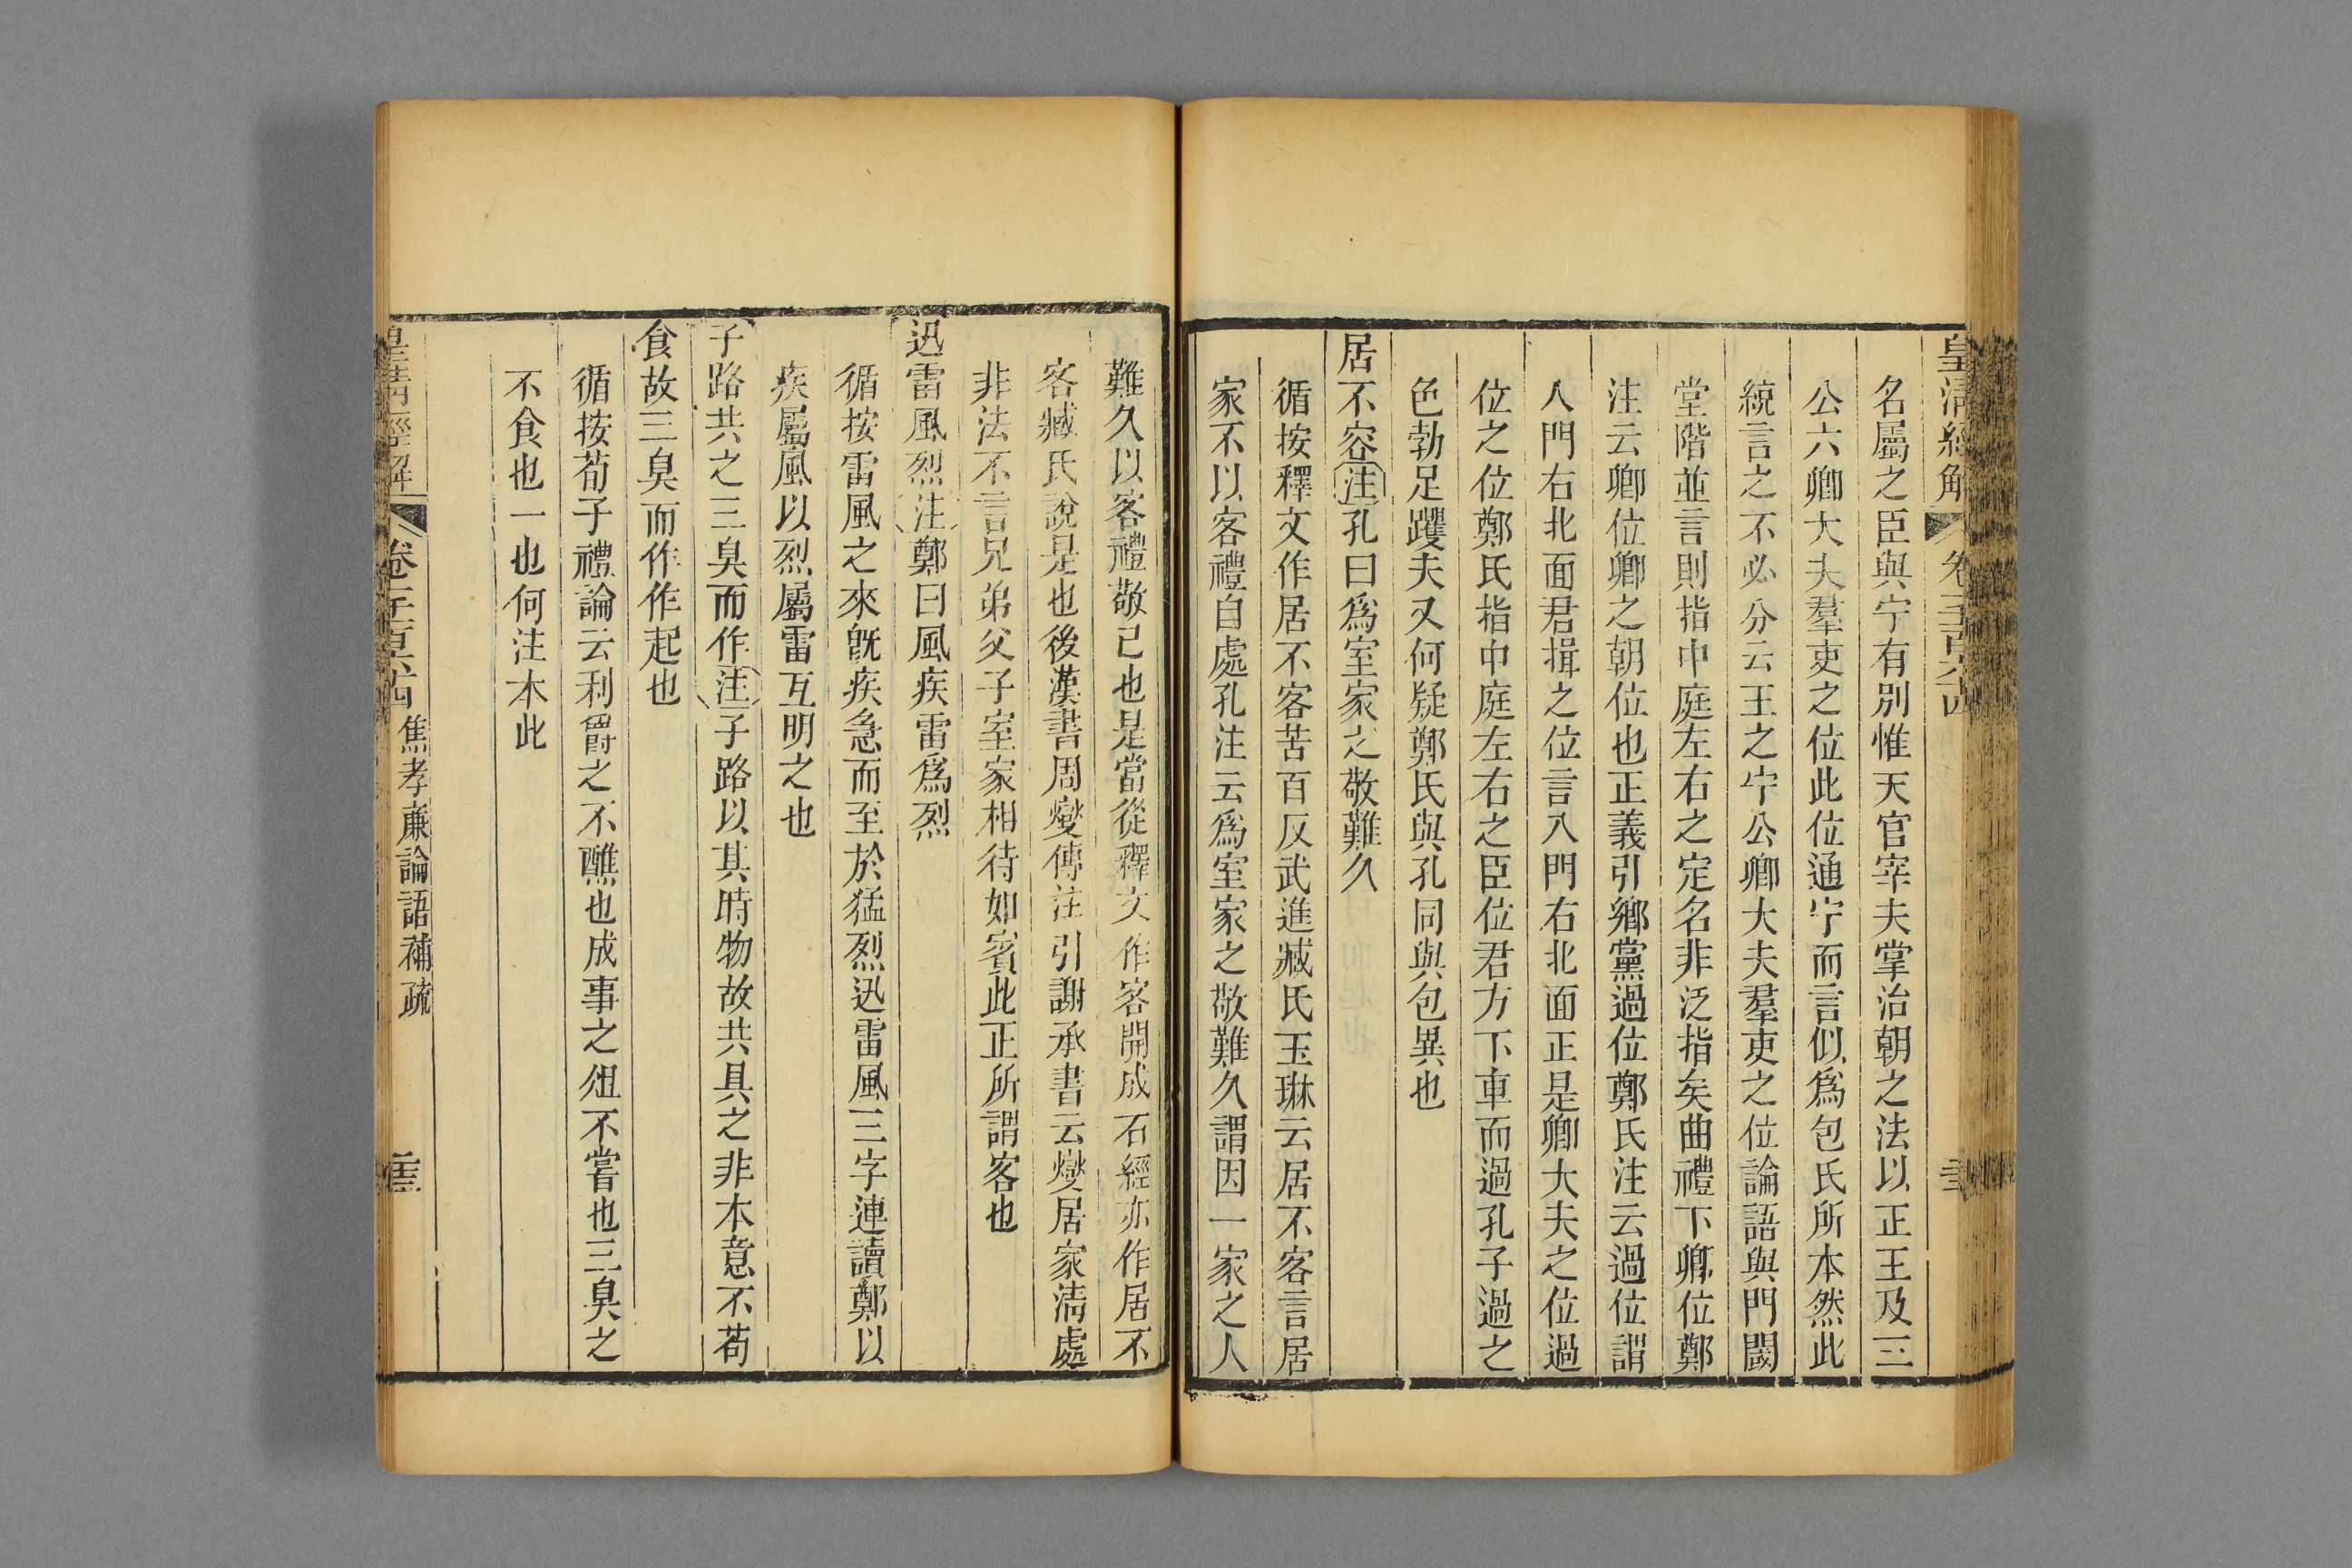 皇清經解 卷一千一百六十四
名屬之臣與宁有別惟天官宰夫掌治朝之法以正王及三
公六卿大夫羣吏之位此位通宁而言似爲包氏所本然此
統言之不必分云王之宁公卿大夫羣吏之位論語與門闑
堂階並言則指中庭左右之定名非泛指矣曲禮下卿位鄭
注云卿位卿之朝位也正義引鄉黨過位鄭氏注云過位謂
入門右北面君揖之位言入門右北面正是卿大夫之位過
位之位鄭氏指中庭左右之臣位君方下車而過孔子過之
色勃足躩夫又何疑鄭氏與孔同與包異也
居不容注孔曰爲室家之敬難久
循按釋文作居不客苦百反武進臧氏玉琳云居不客言居
家不以客禮自處孔注云爲室家之敬難久謂因一家之人
難久以客禮敬己也是當從釋文作客開成石經亦作居不
客臧氏說是也後漢書周燮傳注引謝承書云燮居家清處
非法不言兄弟父子室家相待如賓此正所謂客也
迅雷風烈注鄭曰風疾雷爲烈
循按雷風之來旣疾急而至於猛烈迅雷風三字連讀鄭以
疾屬風以烈屬雷互明之也
子路共之三臭而作注子路以其時物故共具之非本意不苟
食故三臭而作作起也
循按荀子禮論云利爵之不醮也成事之俎不嘗也三臭之
不食也一也何注本此
皇清經解 卷一千一百六十四 焦孝廉論語補疏